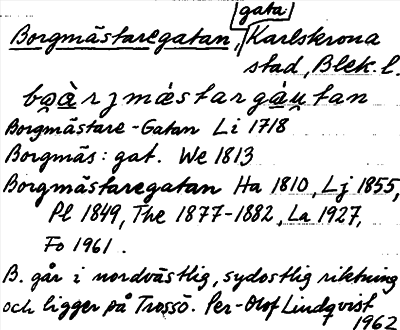 gata
Borgmästaregatan, Karlskrona
stad, Blek. l.
bo̯àrjmástargáu̯tan
Borgmästare-Gatan Li 1718
Borgmäs: gat. We 1813
Borgmästaregatan Ha 1810, Lj 1855,
Pl 1849, The 1877-1882, La 1927,
Fo 1961.
B. går i nordvästlig, sydostlig riktning
och ligger på Trossö. Per-Olof Lindqvist
1962